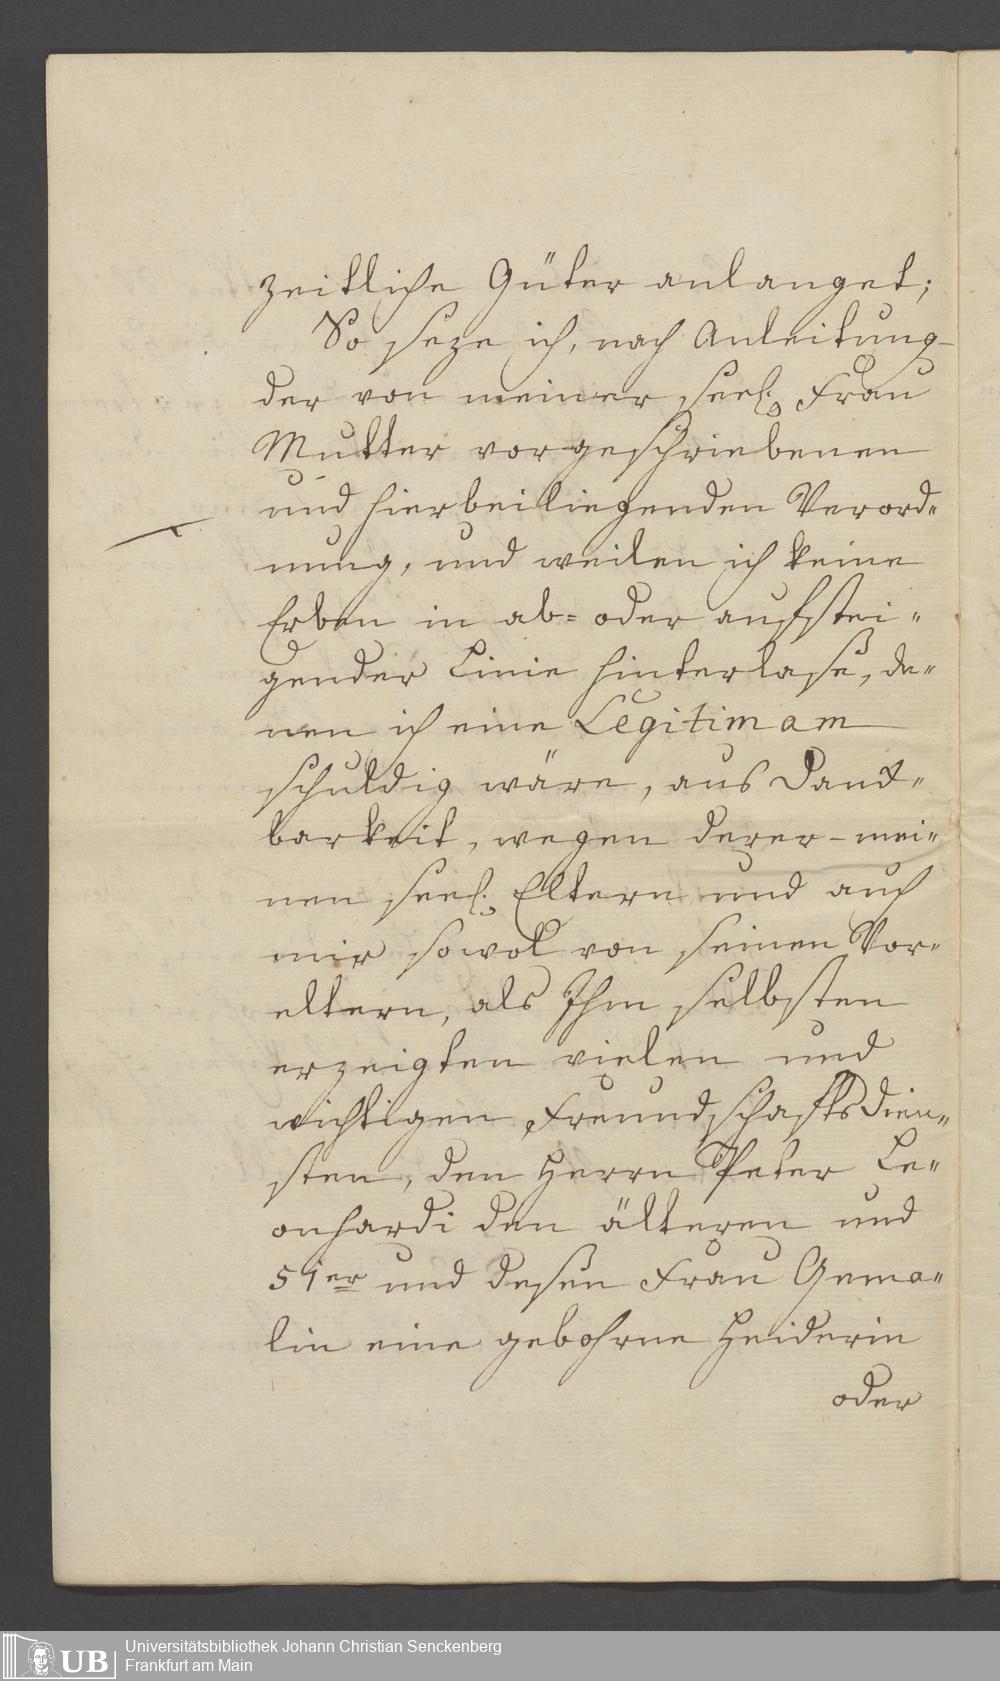 zeitliche Güter anlanget;
So seze ich, nach Anleitung
der von meiner seel. Frau
Mutter vorgeschriebenen
und hierbeiliegenden Verord=
nung, und weilen ich keine
Erben in ab= oder aufstei=
gender Linie hinterlaße, de=
nen ich eine Legitimam
schuldig wäre, aus Dank=
barkeit, wegen derer mei=
nen seel. Eltern und auch
mir sowol von seinen Vor=
eltern, als Ihm selbsten
erzeigten vielen und
wichtigen Freundschafts Dien=
sten, den Herrn Peter Le=
onhardi den älteren und
51er und deßen Frau Gema=
lin eine gebohrne Heiderin
oder
UB
Universitätsbibliothek Johann Christian Senckenberg
Frankfurt am Main